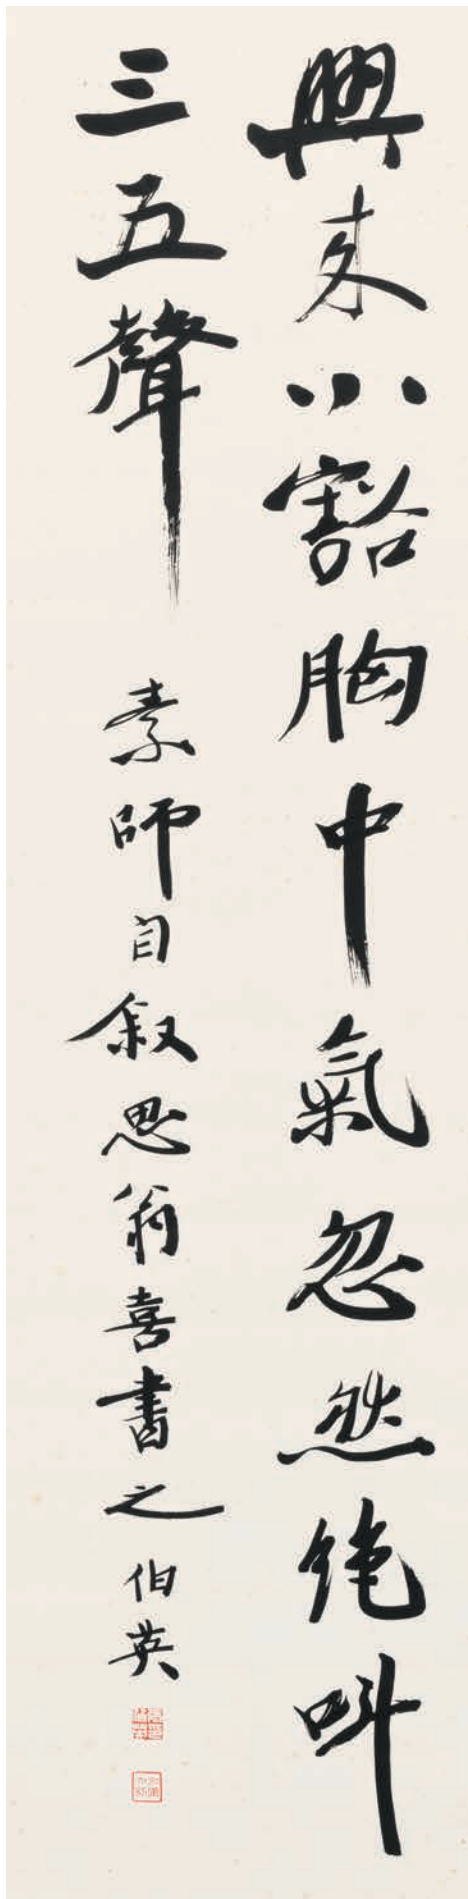 興来小豁胸中氣忽然絶叫
三五聲 素師自叙思翁喜書之 伯英